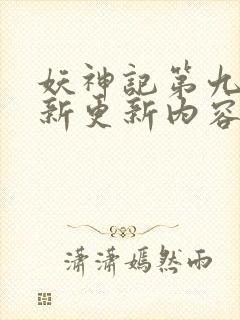 妖神記第九
新更新内容
潇潇嫣然雨